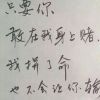 只要你
敢在我身上赌,
我拼了命
也不会让你